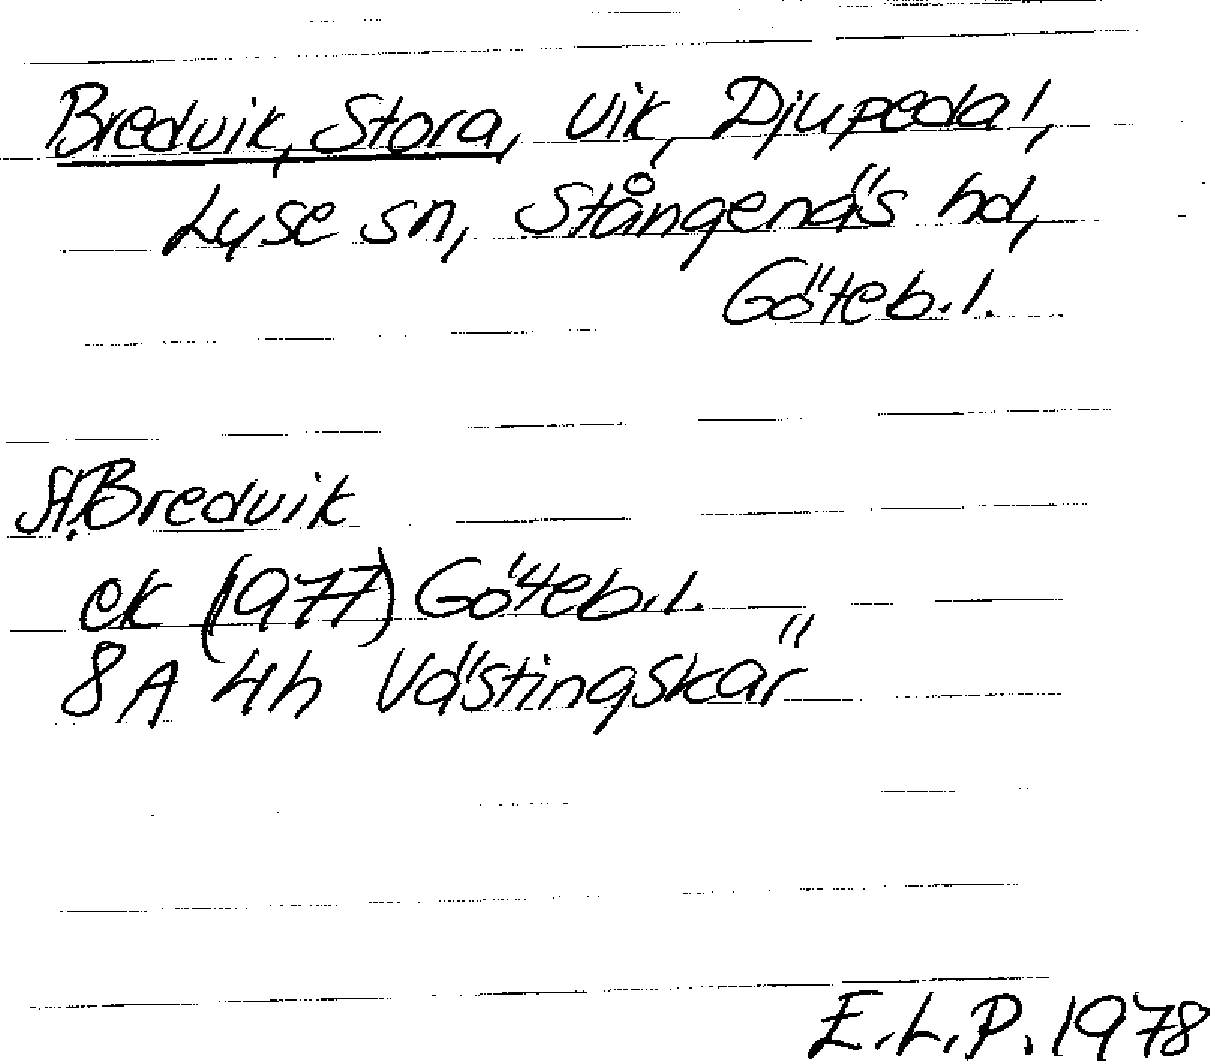 Bredvik, Stora, vik, Djupedal,
Lyse sn, Stångenäs hd,
Göteb.l.
St. Bredvik
ek (1977) Göteb.l.
8A 4h Västingskär
E.L.P. 1978